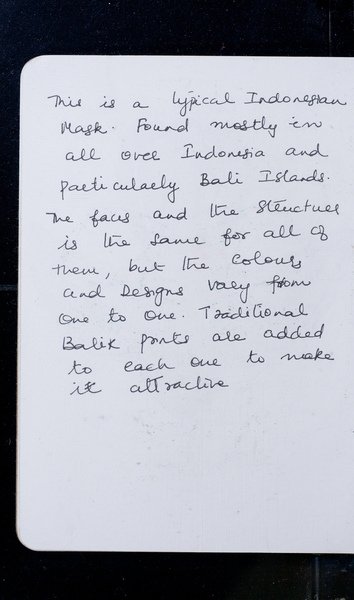 This is a typical Indonesian
Mask. Found mostly in
all over Indonesia and
particularly Bali Islands.
The faces and the structure
is the same for all of
them, but the colours
and Designs vary from
one to one. Traditional
Batik prints are added
to each one to make
it attractive